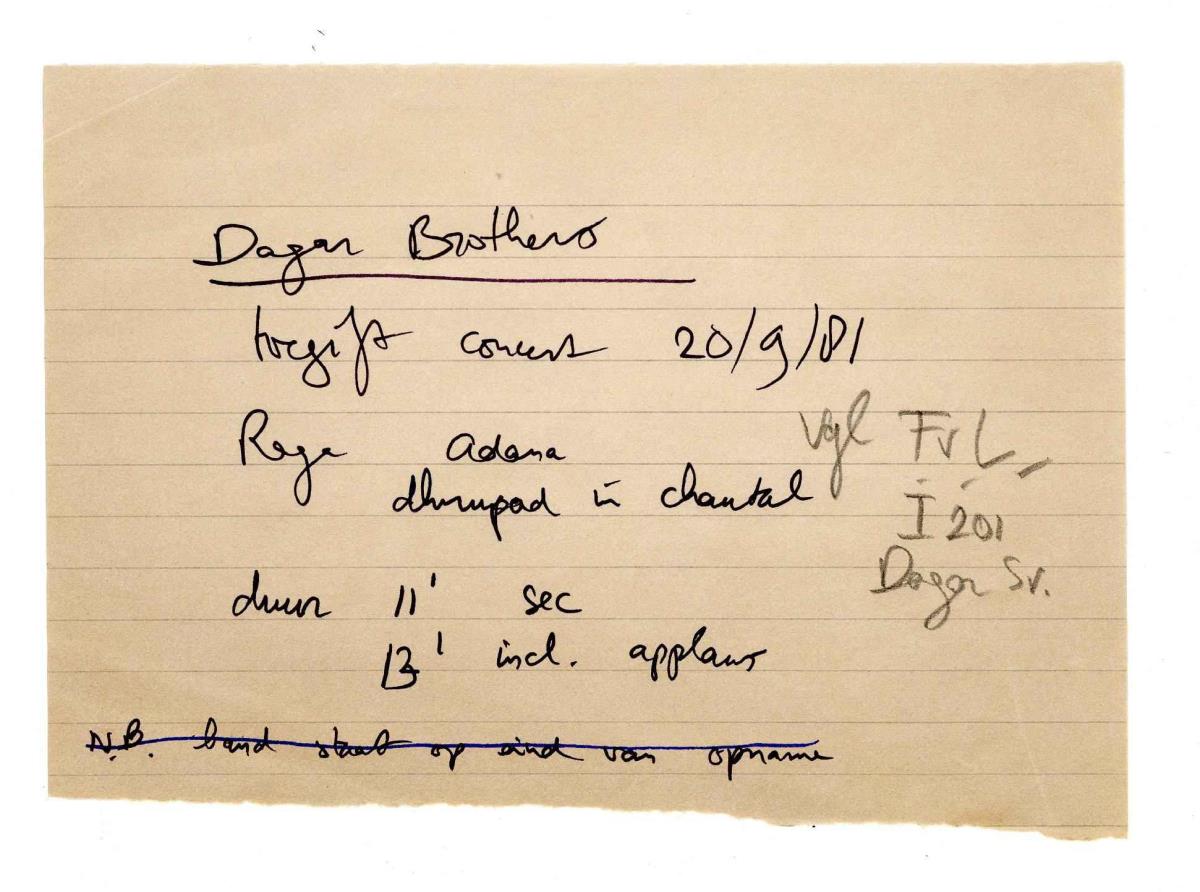 Dagar Brothers
toegift concert 20/9/81
Raga Adana
dhrupad in chautal
Vgl FvL
I 201
Dagar Sr.
duur 11' sec
13' incl. applaus
N.B. band staat op eind van opname